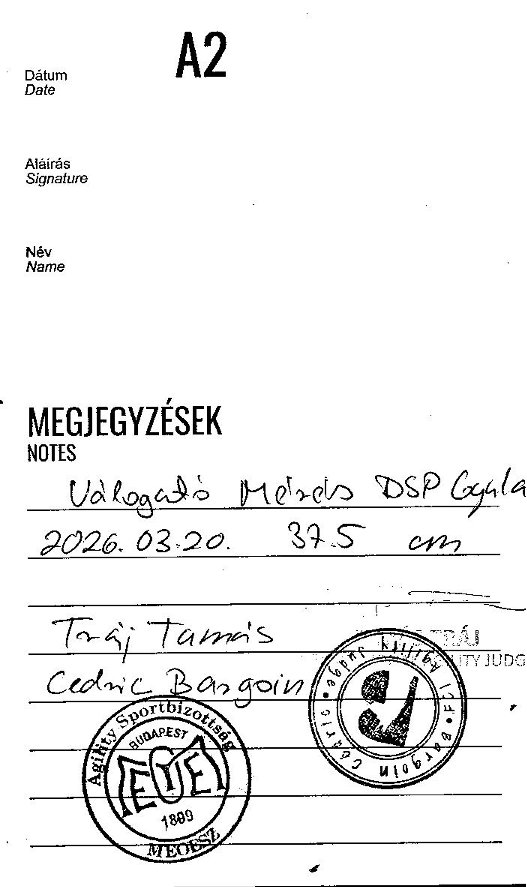 A2
Dátum
Date
Aláírás
Signature
Név
Name
MEGJEGYZÉSEK
NOTES
Válogató Mérés DSP Gyula
2026. 03.20. 37.5 cm
Tráj Tamás
TRÁJ
ITY JUDG
Cedric Bargoin
FCI agility judge • Bargoin Cédric •
Agility Sportbizottság
BUDAPEST
1899
MEOESZ